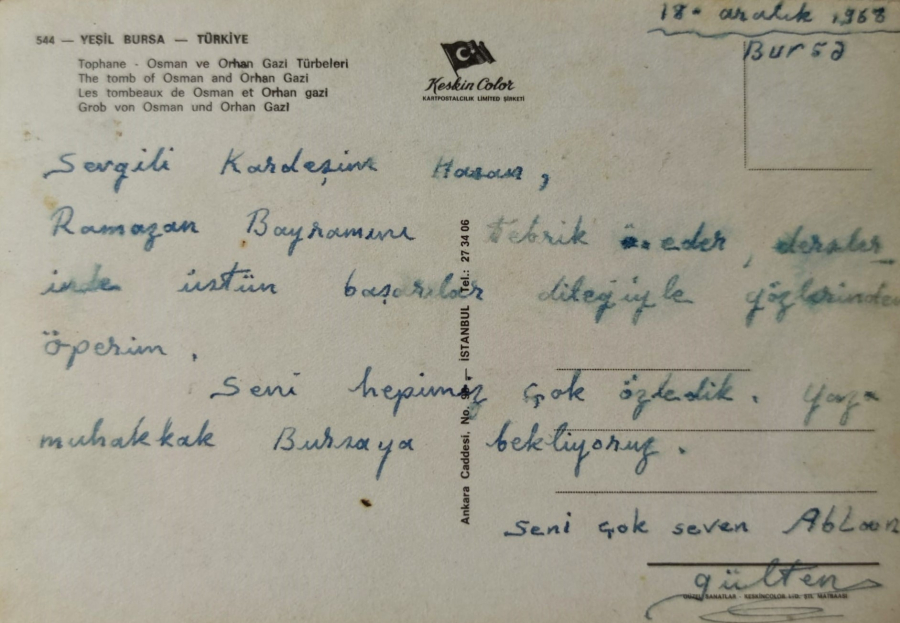 18 - aralık 1968
Bursa
544 — YEŞİL BURSA — TÜRKİYE
Tophane - Osman ve Orhan Gazi Türbeleri
The tomb of Osman and Orhan Gazi
Les tombeaux de Osman et Orhan gazi
Grob von Osman und Orhan Gazi
Keskin Color
KARTPOSTALCILIK LİMİTED ŞİRKETİ
Sevgili Kardeşim Hasan,
Ramazan Bayramını Tebrik eder, dersler
inde üstün başarılar dileğiyle gözlerinden
öperim.
Seni hepimiz çok özledik. Yaza
muhakkak Bursaya bekliyoruz.
Seni çok seven Ablan
gülten
Ankara Caddesi, No. — İSTANBUL Tel.: 27 34 06
GÜZEL SANATLAR - KESKİNCOLOR LTD. ŞTİ. MATBAASI